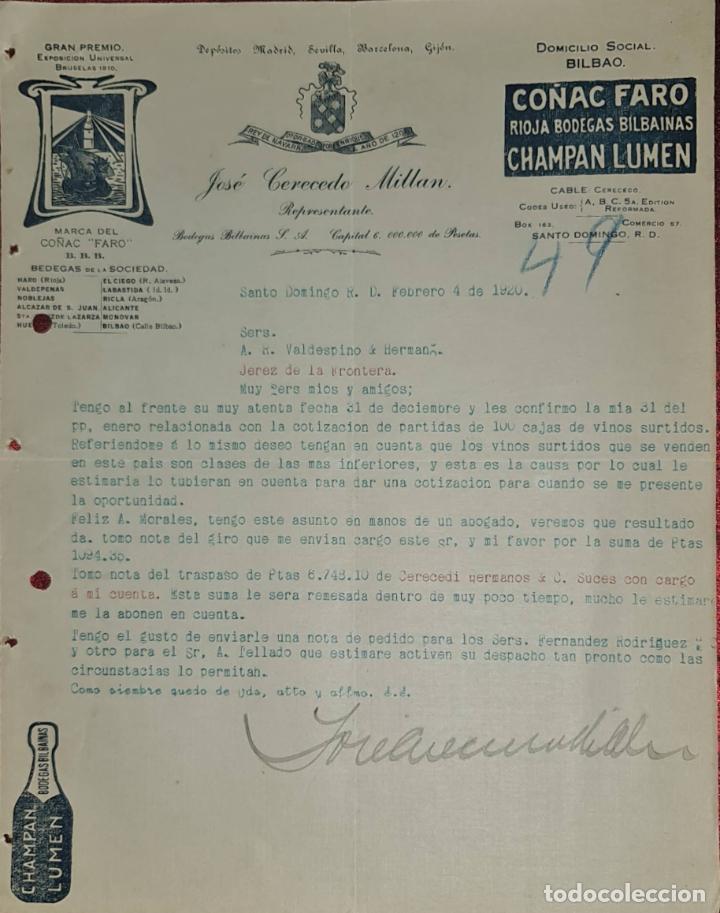 GRAN PREMIO.
EXPOSICION UNIVERSAL
BRUSELAS 1910.
MARCA DEL
COÑAC "FARO"
B. B. B.
BEDEGAS DE LA SOCIEDAD.
HARO (Rioja)
VALDEPENAS
NOBLEJAS
ALCAZAR DE S. JUAN
ELCIEGO (R. Alavesa)
LABASTIDA (Id. Id.)
RICLA (Aragón).
ALICANTE
MONOVAR
BILBAO (Calle Bilbao).
Depósitos Madrid, Sevilla, Barcelona, Gijón.
REY DE NAVARR
AÑO DE 120
José Cerecedo Millan.
Representante.
Bodegas Bilbainas S. A. Capital 6.000.000 de Pesetas.
DOMICILIO SOCIAL.
BILBAO.
COÑAC FARO
RIOJA BODEGAS BILBAINAS
CHAMPAN LUMEN
CABLE CERECEDO.
CODES USED: A, B, C, 5A. EDITION
REFORMADA.
BOX 163. COMERCIO 67.
SANTO DOMINGO, R. D.
49
Santo Domingo R. D. Febrero 4 de 1920.
Sers.
A. R. Valdespino & Herman
Jerez de la Frontera.
Muy Sers mios y amigos;
Tengo al frente su muy atenta fecha 31 de deciembre y les confirmo la mia 31 del
pp, enero relacionada con la cotizacion de partidas de 100 cajas de vinos surtidos.
Referiendome á lo mismo deseo tengan en cuenta que los vinos surtidos que se venden
en este pais son clases de las mas inferiores, y esta es la causa por lo cual le
estimaria lo tubieran en cuenta para dar una cotizacion para cuando se me presente
la oportunidad.
Feliz A. Morales, tengo este asunto en manos de un abogado, veremos que resultado
da. tomo nota del giro que me envian cargo este sr, y mi favor por la suma de Ptas
Tomo nota del traspaso de Ptas 6.748.10 de Cerecedi germanos & C. Suces con cargo
á mi cuenta. Esta suma le sera remesada dentro de muy poco tiempo, mucho le estimare
me la abonen en cuenta.
Tengo el gusto de enviarle una nota de pedido para los Sers. Fernandez Rodriguez
y otro para el Sr, A. Tellado que estimare activen su despacho tan pronto como las
circunstacias lo permitan.
Como siembre quedo de Vds, atto y affmo. s.s.
CHAMPAN
LUMEN
BODEGAS BILBAINAS
todocoleccion